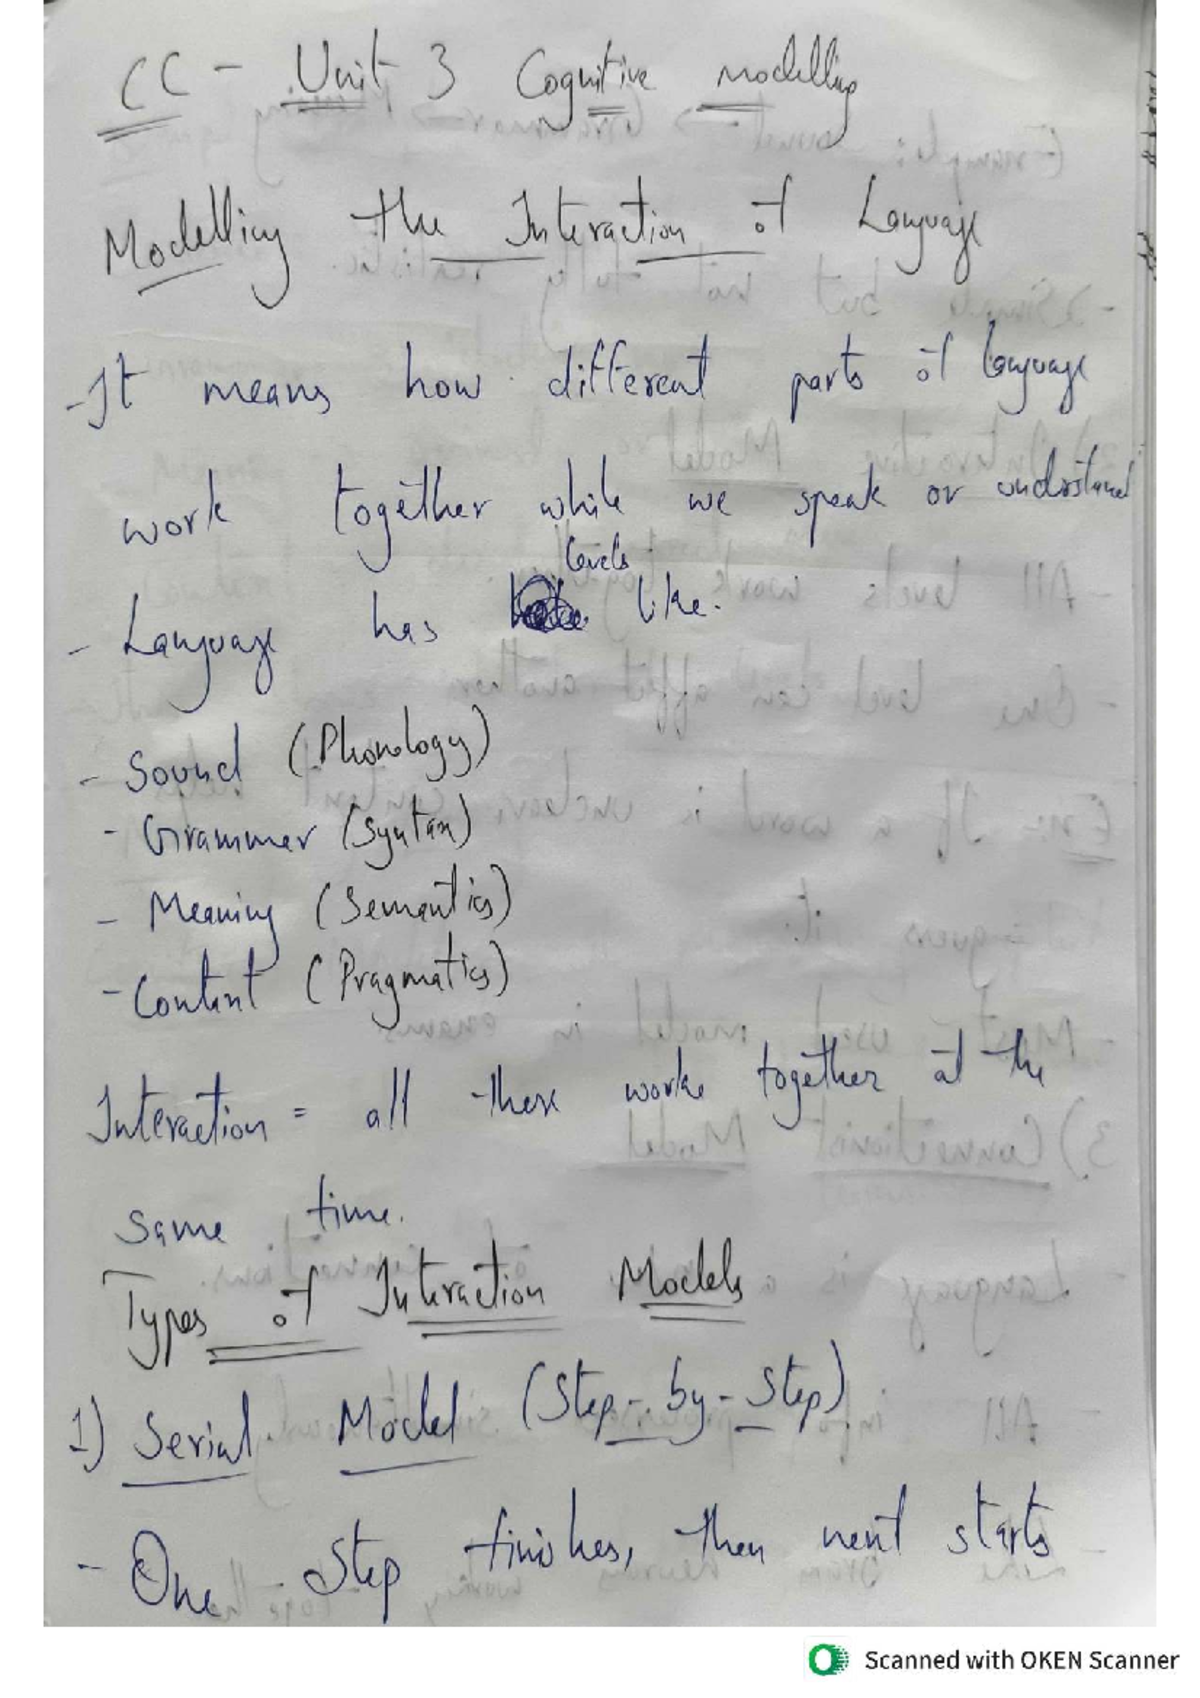 CC - Unit 3 Cognitive modelling
Modelling the Interaction of Language
- It means how different parts of language
work together while we speak or understand
levels
- Language has like.
- Sound (Phonology)
- Grammer (Syntax)
- Meaning (Semantics)
- Context (Pragmatics)
Interaction = all these work together at the
same time.
Types of Interaction Models
1) Serial Model (Step-by-Step)
- One Step finishes, then next starts
Scanned with OKEN Scanner